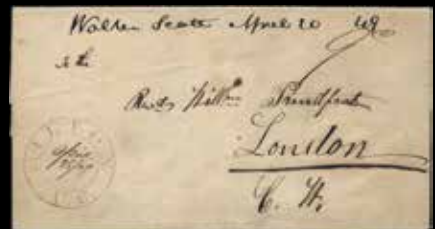 Walter Scott April 20 49
to the
Revd William Proudfoot
London
C. W.